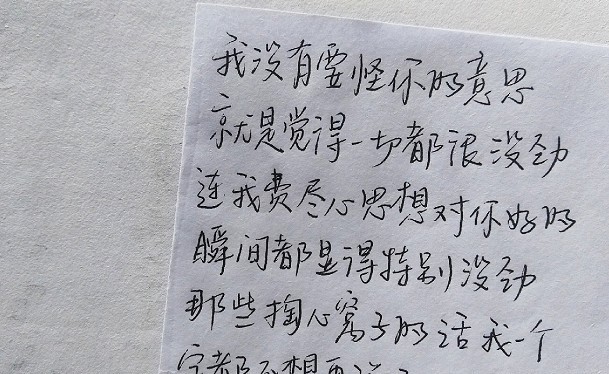 我没有要怪你的意思
就是觉得一切都很没劲
连我费尽心思想对你好的
瞬间都显得特别没劲
那些掏心窝子的话我一个
字都不想再说